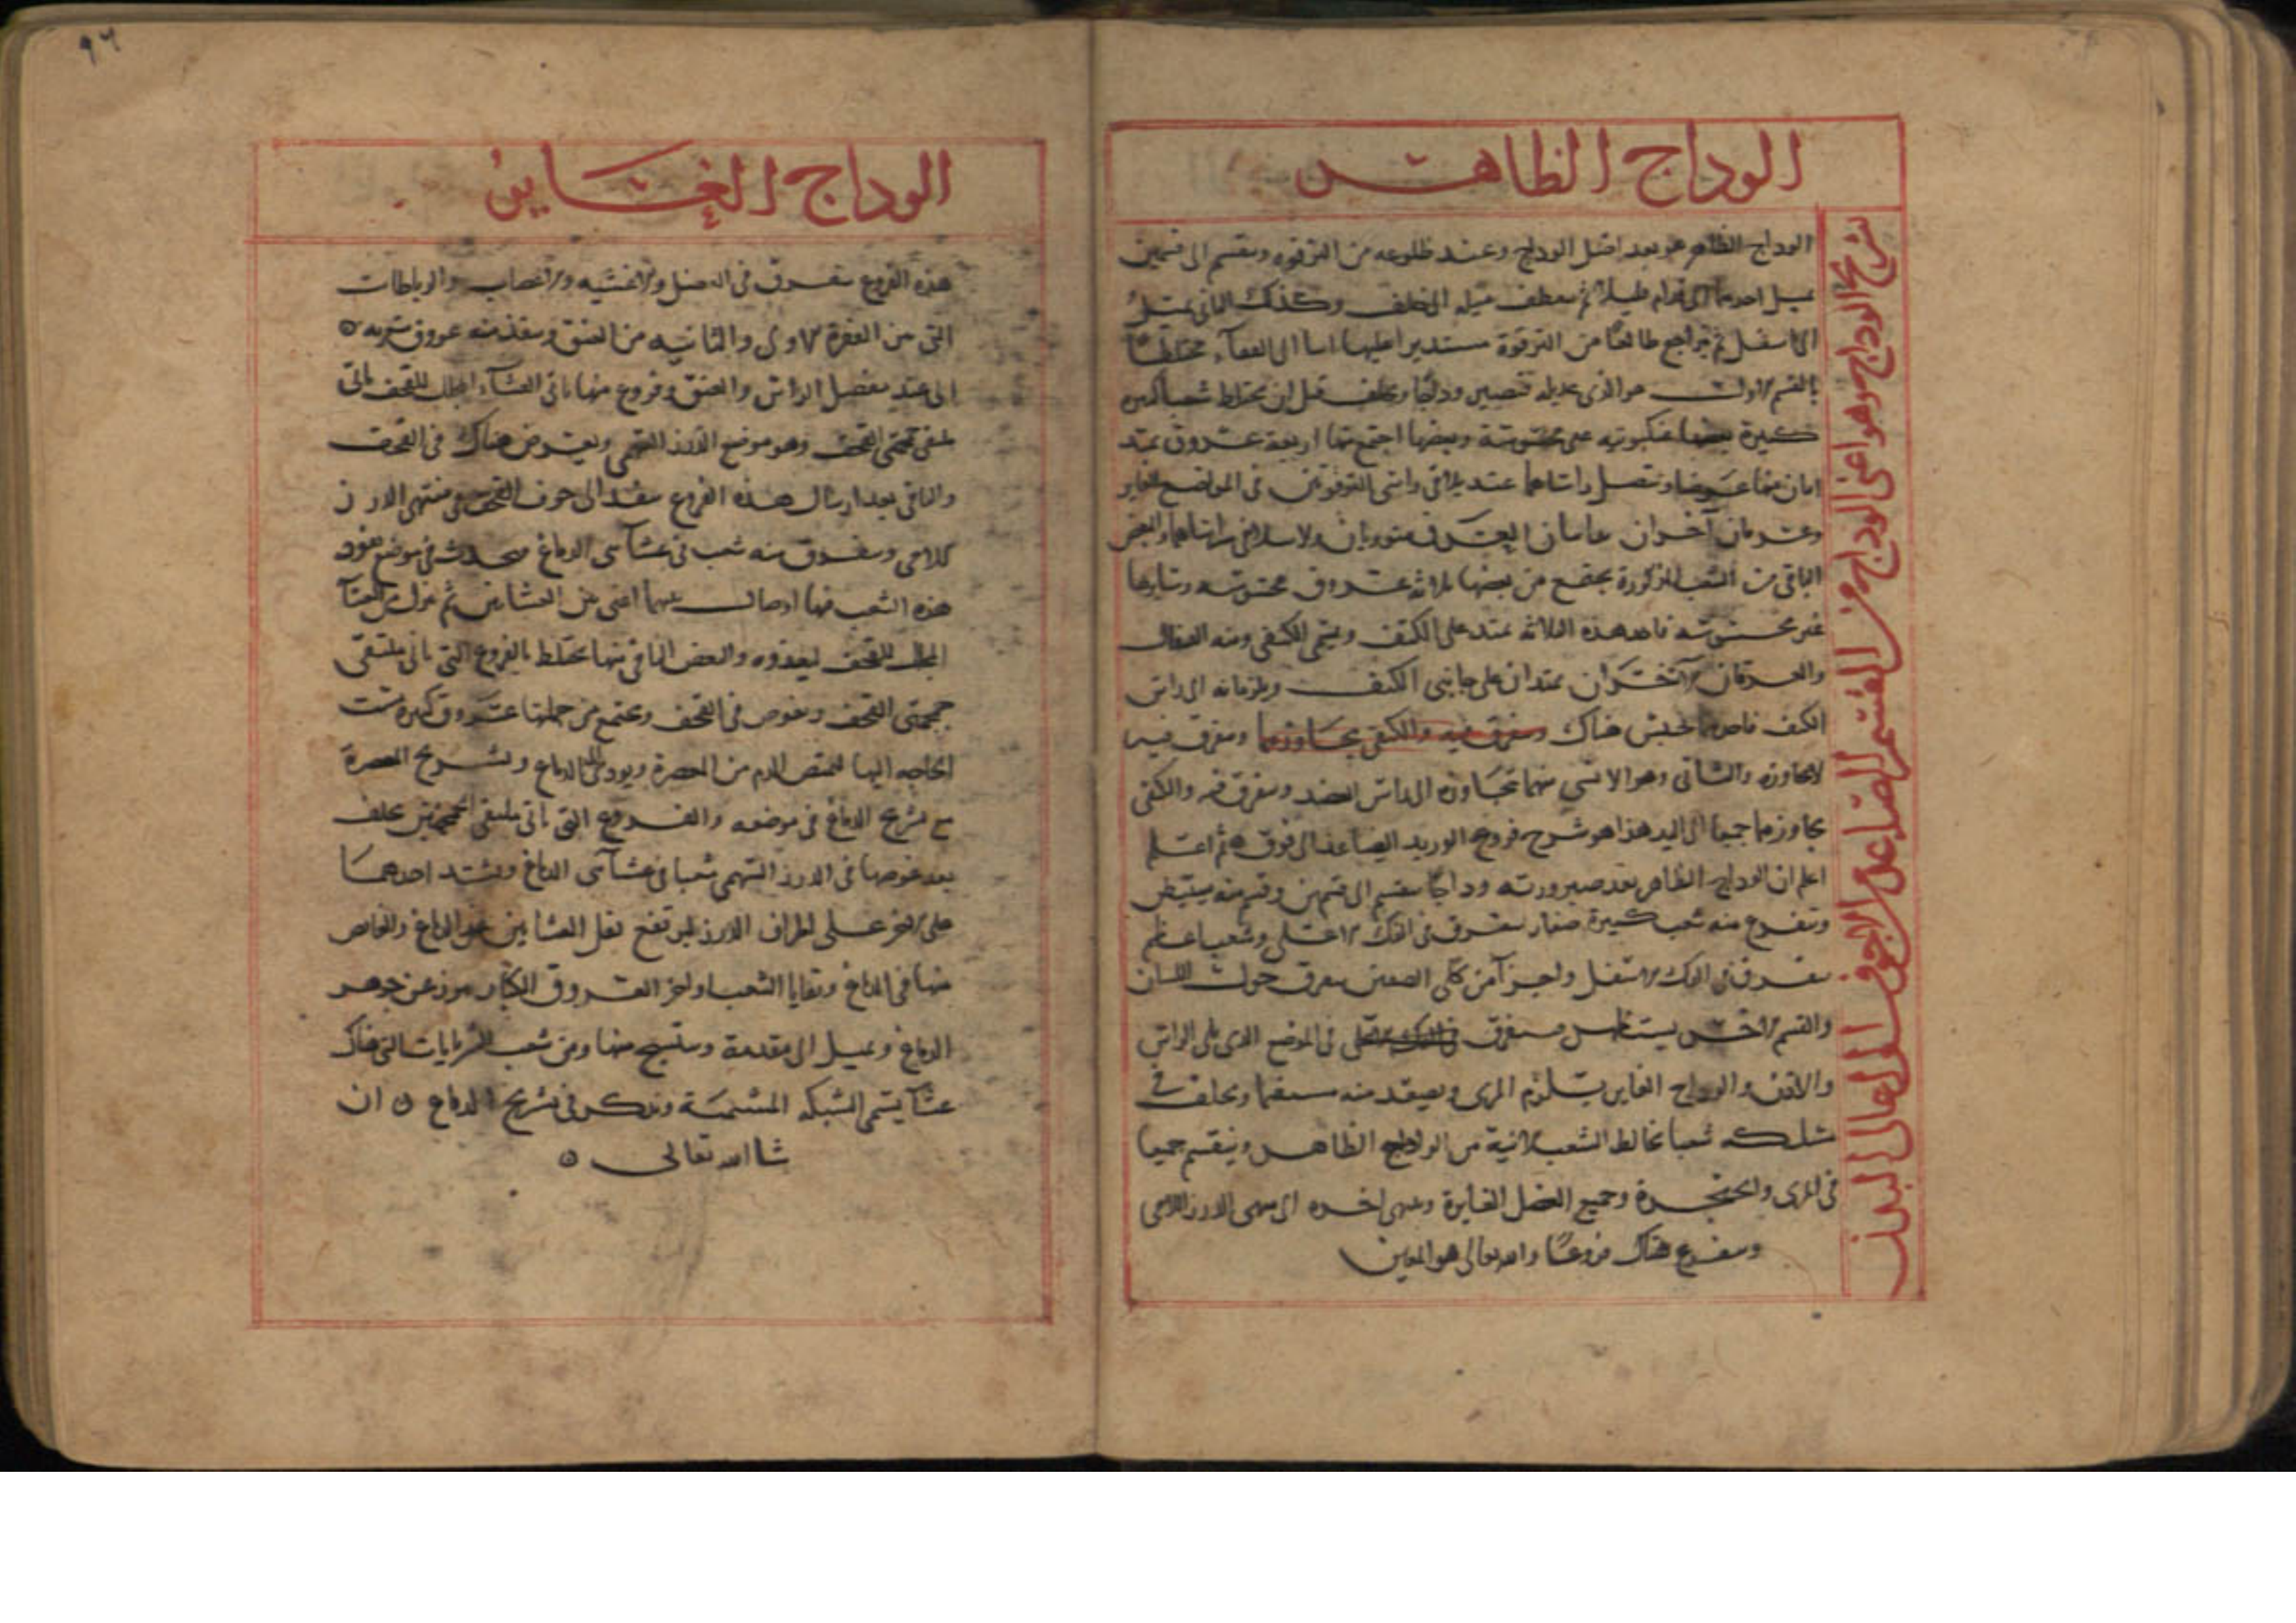 الوداج الظاهر
تشريح الوداج وهو اعنى الوداج من القسم الصاعد من الاجوف الى اعالى البدن
الوداج الظاهر هو بعد اصل الوداج وعند طلوعه من الترقوه وينقسم الى قسمين
يميل احدهما الى قدام قليلا ثم ينعطف ميله الى خلف وكذلك الثانى يميل
الى اسفل ثم يراجع طالعًا من الترقوة مستديرا عليها الى القفاء مختلطًا
بالقسم الاول هو الذى فتصير وداجًا ويخلف قبل ان يختلط شعبا كثيره
كبيرة بعضها عنكبوتيه غير محسوسة وبعضها اجتمع منها اربعة عروق يمتد
اثنان منها عرضا ويتصل راساهما عند ملاقى راسى الترقوتين فى الموضع الغاير
وعرقان آخران موربان ولا يتلاقى راساهما والبعض
الباقى من الشعب المذكورة يجتمع من بعضها ثلاثه عروق محسوسه وسايرها
غير محسوسه فاحد هذه الثلاثه يمتد على الكتف ويسمى الكتفى ومنه القيفال
والعرقان الآخران يمتدان على جانبى الكتف ويلزمانه الى راس
الكتف فاحدهما يحتبس هناك ويتفرق فيه والكتفى يجاوزهما ويتفرق فيه
لا يجاوزه والثانى وهو الانسى منهما يتجاوزه الى راس العضد ويتفرق فيه والكتفى
يجاوزهما جميعا الى اليد هذا هو شرح فروع الوريد الصاعد الى فوق ثم اعلم
اعلم ان الوداج الظاهر بعد صيرورته وداجًا ينقسم الى قسمين وقسم منه يستبطن
وتتفرع منه شعب كبيرة صغار تتفرق فى الفك الاعلى وشعب اعظم
تتفرق فى الفك الاسفل واجزآ من كلى الصنفين يتفرق حول اللسان
والقسم الاخر يستظهر فيتفرق فى الموضع الذى يلى الراس
والاذن والوداج الغاير يلزم المرى ويصعد منه مستقيما ويخلف فى
مسلكه شعبا تخالط الشعب الاتية من الوداج الظاهر وينقسم جميعا
فى المرى والحنجرة وجميع العضل الغايرة وينتهى اخره الى منتهى الدرز اللامى
ويتفرع هناك فروعًا والله تعالى هو المعين
٩٦
الوداج الغاير
هذه الفروع تتفرق فى العضل والاغشيه والاعصاب والرباطات
التى من الفقرة الاولى والثانيه من العنق وينفذ منه عروق شعريه
الى عند مفصل الراس والعنق وفروع منها ياتى الغشاء المجلل للقحف ياتى
ملتقى جمجمتى القحف وهو موضع الدرز السهمى ويغوص هناك فى القحف
والباقى بعد ارسال هذه الفروع ينفذ الى جوف القحف فى منتهى الدرز
اللامى ويتفرق منه شعب فى غشآئى الدماغ فوق
هذه الشعب منها اعنى من الغشاين ثم من الغشآ
المجلل للقحف ليغذوه والبعض الباقى منها يختلط بالفروع التى ياتى ملتقى
جمجمتى القحف وتغوص فى القحف ويجتمع من جملتها عروق كبيره مست
الحاجه اليها لتمتص الدم من المعصرة ويودى الى الدماغ وتشريح المعصرة
مع تشريح الدماغ فى موضعه والفروع التى ياتى ملتقى الجمجمتين يخلف
بعد غوصها فى الدرز السهمى شعبا فى غشآئى الدماغ ويشد احدهما
على الاخر على اطراف الدرز ليرتفع ثقل الغشاين عن الدماغ والغايص
منها فى الدماغ وبقايا الشعب واواخر العروق الكبار يبرز عن جوهر
الدماغ ويميل الى مقدمه وينتسج منها ومن شعب الشريانات التى هناك
غشآ يسمى الشبكه المشيمية ويذكر فى تشريح الدماغ ان
شا الله تعالى